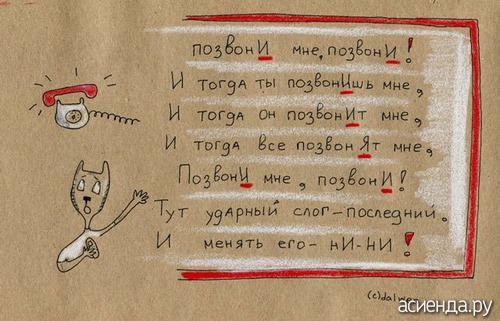 позвонИ мне, позвонИ!
И тогда ты позвонИшь мне,
И тогда он позвонИт мне,
И тогда все позвонЯт мне,
ПозвонИ мне, позвонИ!
Тут ударный слог-последний.
И менять его-нИ-НИ!
(c)dalwen
асиенда.ру